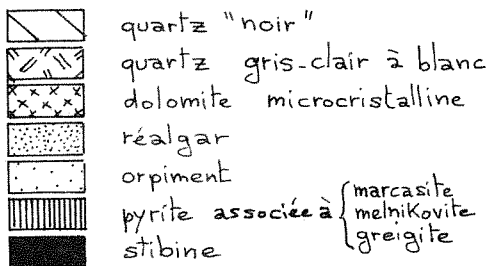 quartz "noir"
quartz gris-clair à blanc
dolomite microcristalline
réalgar
orpiment
pyrite associée à { marcasite
melnikovite
greigite
stibine